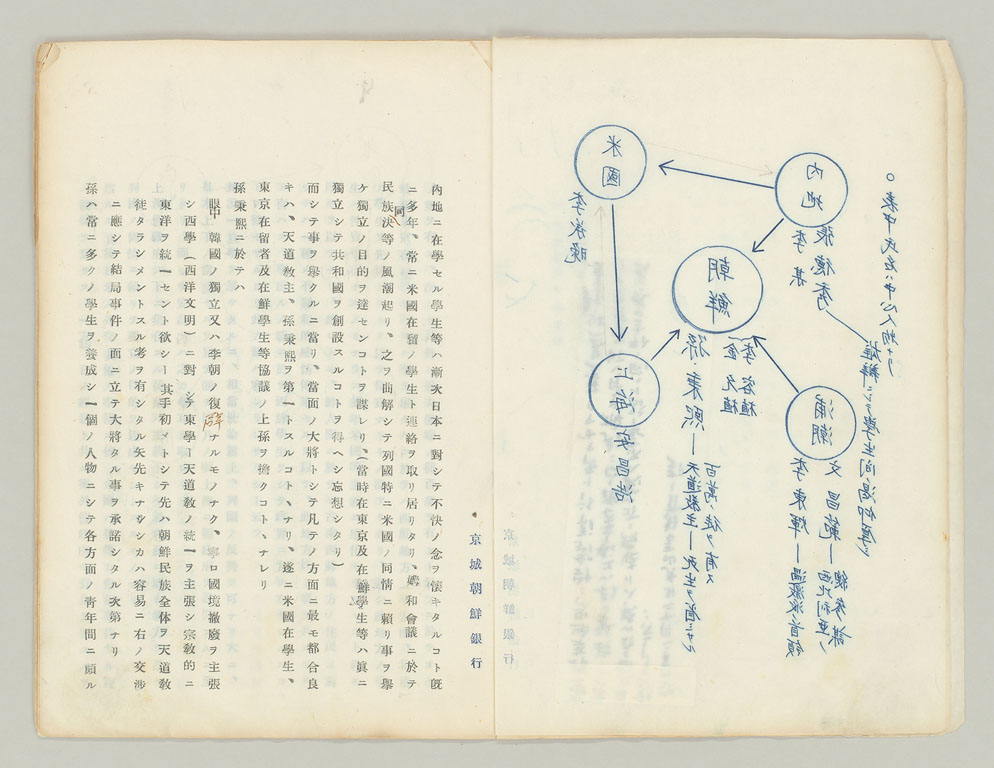 ○表中氏名ハ中心人物ナリ
内地
張德秀
雄辯ニシテ學生間ノ渇仰厚シ
李某
米國
李承晩
朝鮮
李容植
金允植
孫秉熙―天道教主―死生ヲ省ミサル
百萬ノ徒ヲ有ス
浦潮
文昌範―西比利亜ノ
總参謀
李東輝―過激派首領
上海
安昌浩
京城朝鮮銀行
京城朝鮮銀行
內地ニ在學セル學生等ハ漸次日本ニ對シテ不快ノ念ヲ懷キタルコト旣
ニ多年、常ニ米國在留ノ學生ト連絡ヲ取リ居リタリ、媾和會議ニ於テ
民族決等ノ風潮起リ、之ヲ曲解シテ列國特ニ米國ノ同情ニ賴リ事ヲ擧
ケ獨立ノ目的ヲ達センコトヲ謀レリ、(當時在東京及在鮮學生等ハ眞ニ
獨立シテ共和國ヲ創設スルコトヲ得ヘシト忘想シタリ)
而シテ事ヲ擧クルニ當リ、當面ノ大將トシテ凡テノ方面ニ最モ都合良
キハ、天道敎主、孫秉熙ヲ第一トスルコトヽナリ、遂ニ米國在學生、
東京在留者及在鮮學生等協議ノ上孫ヲ擔クコトヽナレリ
孫秉熙ニ於テハ
眼中 韓國ノ獨立又ハ李朝ノ復辟ナルモノナク、寧ロ國境撤廢ヲ主張
シ西學(西洋文明)ニ對シテ東學―天道敎ノ統一ヲ主張シ宗敎的ニ
東洋ヲ統一セント欲シ―其手初メトシテ先ハ朝鮮民族全体ヲ天道敎
徒タラシメントスル考ヲ有シタル矢先キナリシカハ容易ニ右ノ交涉
ニ應シテ結局事件ノ面ニ立テ大將タル事ヲ承諾シタル次第ナリ
孫ハ常ニ多クノ學生ヲ養成シ一個ノ人物ニシテ各方面ノ靑年間ニ頗ル